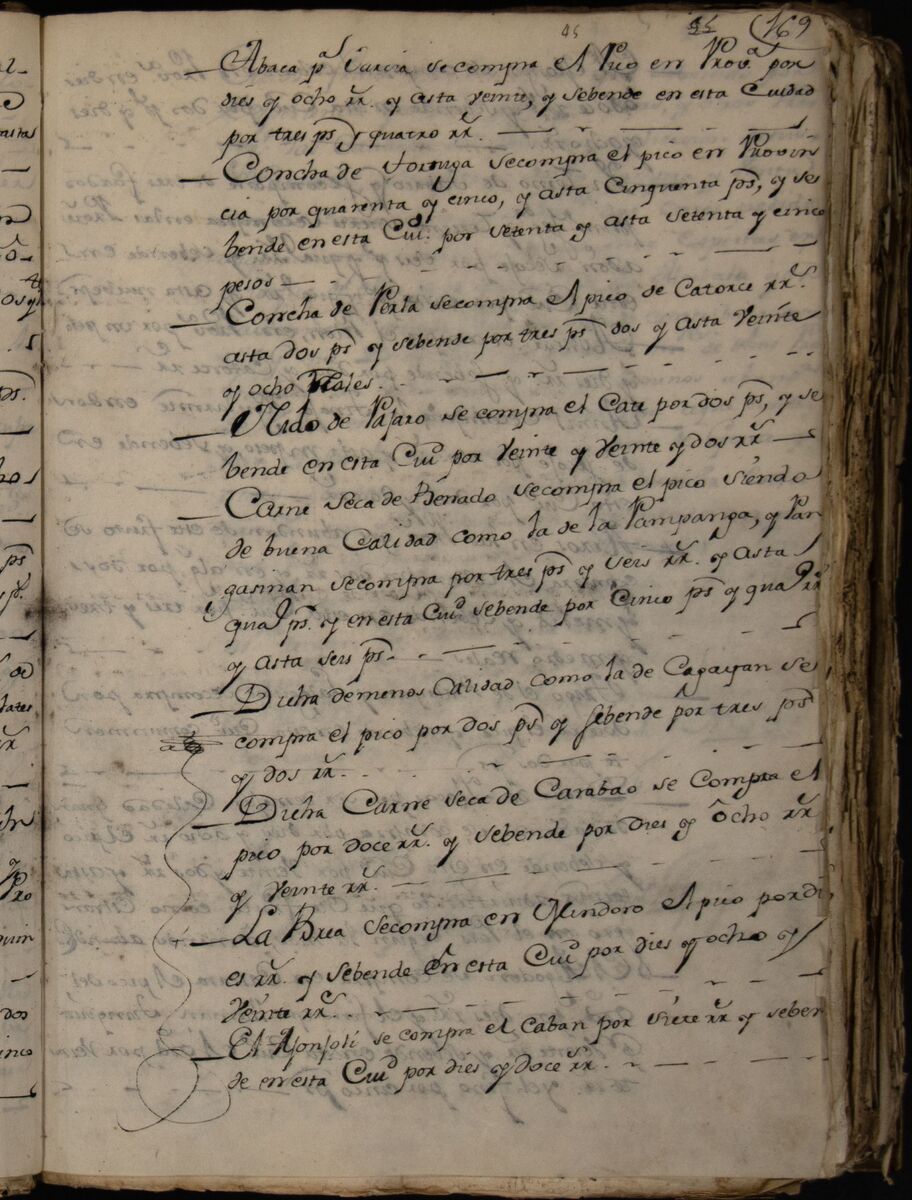 45 45 169
Abaca p.ª Jarcia se compra el Pico en Prov.ª por
dies y ocho rr.ˢ y asta veinte, y sebende en esta Cuidad
por tres p.ˢ y quatro rr.ˢ
Concha de tortuga secompra el pico en Provin
cia por quarenta y cinco, y asta Cinquenta p.ˢ, y se
bende en esta Ciu.ᵈ por setenta y asta setenta y cinco
pesos
Concha de Perla secompra el pico de Catorce rr.ˢ
asta dos p.ˢ y sebende por tres p.ˢ dos y asta Veinte
y ocho Reales.
Nido de Pajaro se compra el Cate por dos p.ˢ, y se
bende en esta Ciu.ᵈ por Veinte y Veinte y dos rr.ˢ
Carne seca de Benado secompra el pico siendo
de buena Calidad como la de la Pampanga, y Pan
gasinan secompra por tres p.ˢ y seis rr.ˢ y asta
qua.º p.ˢ y en esta Ciu.ᵈ sebende por Cinco p.ˢ y qua.º rr.ˢ
y asta seis p.ˢ
Dicha de menos Calidad como la de Cagayan se
compra el pico por dos p.ˢ y sebende por tres p.ˢ
y dos rr.ˢ
Dicha Carne seca de Carabao se Compra el
pico por doce rr.ˢ y sebende por dies y ocho rr.ˢ
y veinte rr.ˢ
La Brea secompra en Mindoro el pico por di
es rr.ˢ y sebende en esta Ciu.ᵈ por dies y ocho y
Veinte rr.ˢ
El Ajonjoli se compra el Caban por siete rr.ˢ y seben
de en esta Ciu.ᵈ por dies y doce rr.ˢ